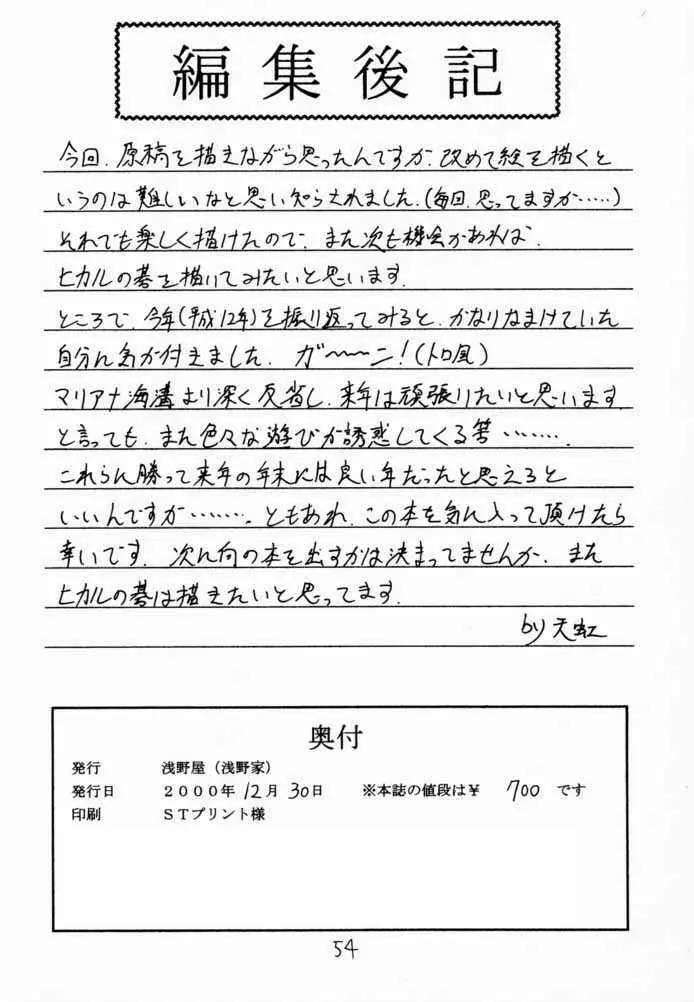 編集後記
今回、原稿を描きながら思ったんですが、改めて絵を描くと
いうのは難しいなと思い知らされました。(毎回、思ってますが……)
それでも楽しく描けたので、また次も機会があれば、
ヒカルの碁を描いてみたいと思います。
ところで、今年(平成12年)を振り返ってみると、かなりなまけていた
自分に気が付きました。ガ〜〜ン!(トロ風)
マリアナ海溝より深く反省し、来年は頑張りたいと思います。
と言っても、また色々な遊びが誘惑してくる筈…….
これらに勝って来年の年末には良い年だったと思えると
いいんですが…….ともあれ、この本を気に入って頂けたら
幸いです。次に何の本を出すかは決まってませんが、また
ヒカルの碁は描きたいと思ってます。
by 天虹
奥付
発行 浅野屋(浅野家)
発行日 2000年12月30日 ※本誌の値段は¥ 700 です
印刷 STプリント様
54